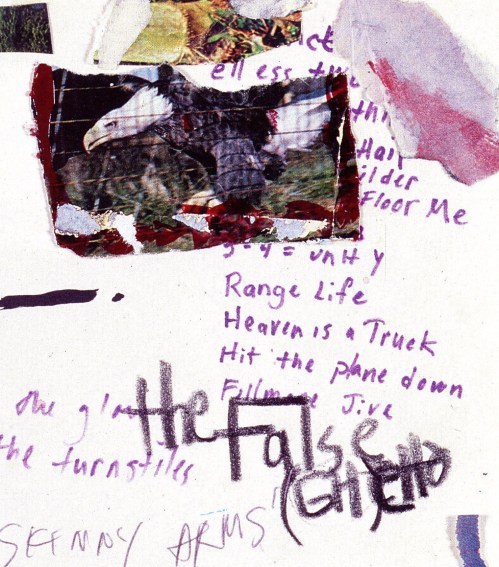 ell ess
Hair
ilder
Floor Me
5-4 = unity
Range Life
Heaven is a Truck
Hit the plane down
Fillmore Jive
the
the turnstiles
the False
(GH)Etto
"SKINNY ARMS"